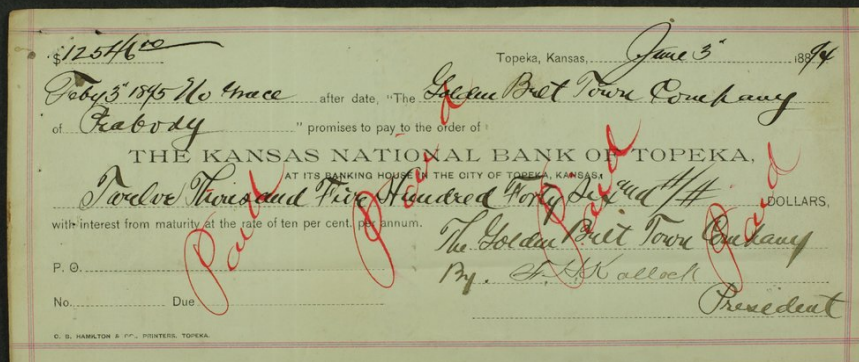 $12546 00 Topeka, Kansas, June 3" 1894
Feby 3" 1895 No Grace after date, "The Golden Belt Town Company
of Peabody " promises to pay to the order of
THE KANSAS NATIONAL BANK OF TOPEKA,
AT ITS BANKING HOUSE IN THE CITY OF TOPEKA, KANSAS,
Twelve Thousand Five Hundred Forty Six and #/# DOLLARS,
with interest from maturity at the rate of ten per cent. per annum.
The Golden Belt Town Company
P. O. By. Kallock
No. Due President
Paid Paid Paid Paid
C. B. HAMILTON & CO., PRINTERS, TOPEKA.